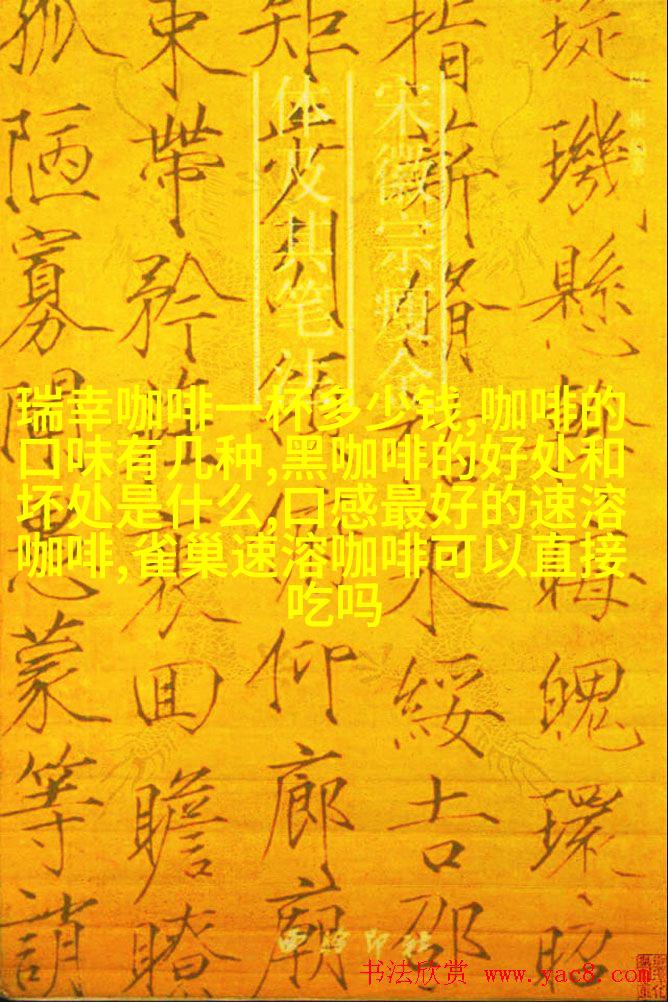 璇璣懸斡晦魄環照
指薪脩祜永綏吉邵
矩步引領俯仰廊廟
束帶矜莊裵回瞻眺
孤陋寡聞愚蒙等誚
宋徽宗瘦金
体及其笔法
瑞幸咖啡一杯多少钱,咖啡的
口味有几种,黑咖啡的好处和
坏处是什么,口感最好的速溶
咖啡,雀巢速溶咖啡可以直接
吃吗
西泠印社
书法欣赏 www.yac8.com